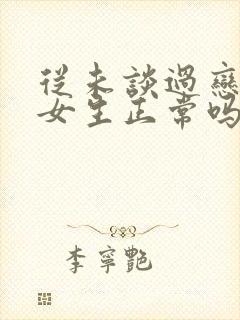 從未談過戀
女生正常嗎
李寧艷